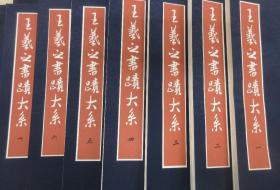 王羲之書蹟大系 一
王羲之書蹟大系 二
王羲之書蹟大系 三
王羲之書蹟大系 四
王羲之書蹟大系 五
王羲之書蹟大系 六
王羲之書蹟大系 七